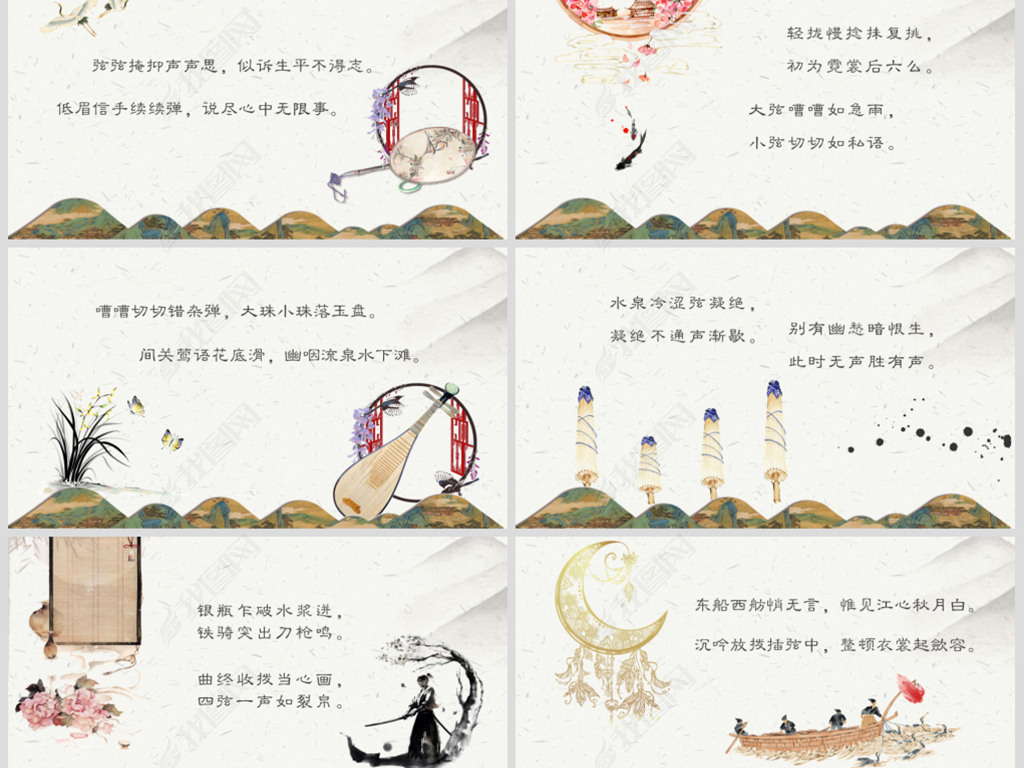 弦弦掩抑声声思，似诉生平不得志。
低眉信手续续弹，说尽心中无限事。
轻拢慢捻抹复挑，
初为霓裳后六么。
大弦嘈嘈如急雨，
小弦切切如私语。
嘈嘈切切错杂弹，大珠小珠落玉盘。
间关莺语花底滑，幽咽流泉水下滩。
水泉冷涩弦凝绝，
凝绝不通声渐歇。
别有幽愁暗恨生，
此时无声胜有声。
银瓶乍破水浆迸，
铁骑突出刀枪鸣。
曲终收拨当心画，
四弦一声如裂帛。
东船西舫悄无言，惟见江心秋月白。
沉吟放拨插弦中，整顿衣裳起敛容。